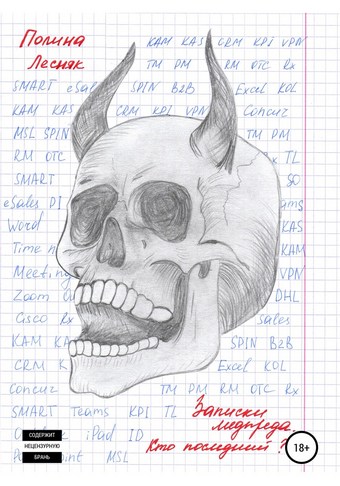 Полина KAM KAS CRM KPI VPN
Лесняк TM DM RM OTC Rx
SMART eSal SPIN B2B Excel KOL
KAM KAS CRM KPI VPN Concur
MSL SPIN TM DM
RM OTC x TL
SMART SO
eSales DI ams
Word KAS
Time m KAM
Meetin VPN
Zoom DHL
Cisco Rx Sales
KAM KA SPIN B2B
CRM K Excel KOL
Concur TM DM RM OTC Rx
SMART Teams KPI TL Записки
медпреда
iPad ID
Кто последний?
P int MSL
СОДЕРЖИТ
НЕЦЕНЗУРНУЮ
БРАНЬ
18+